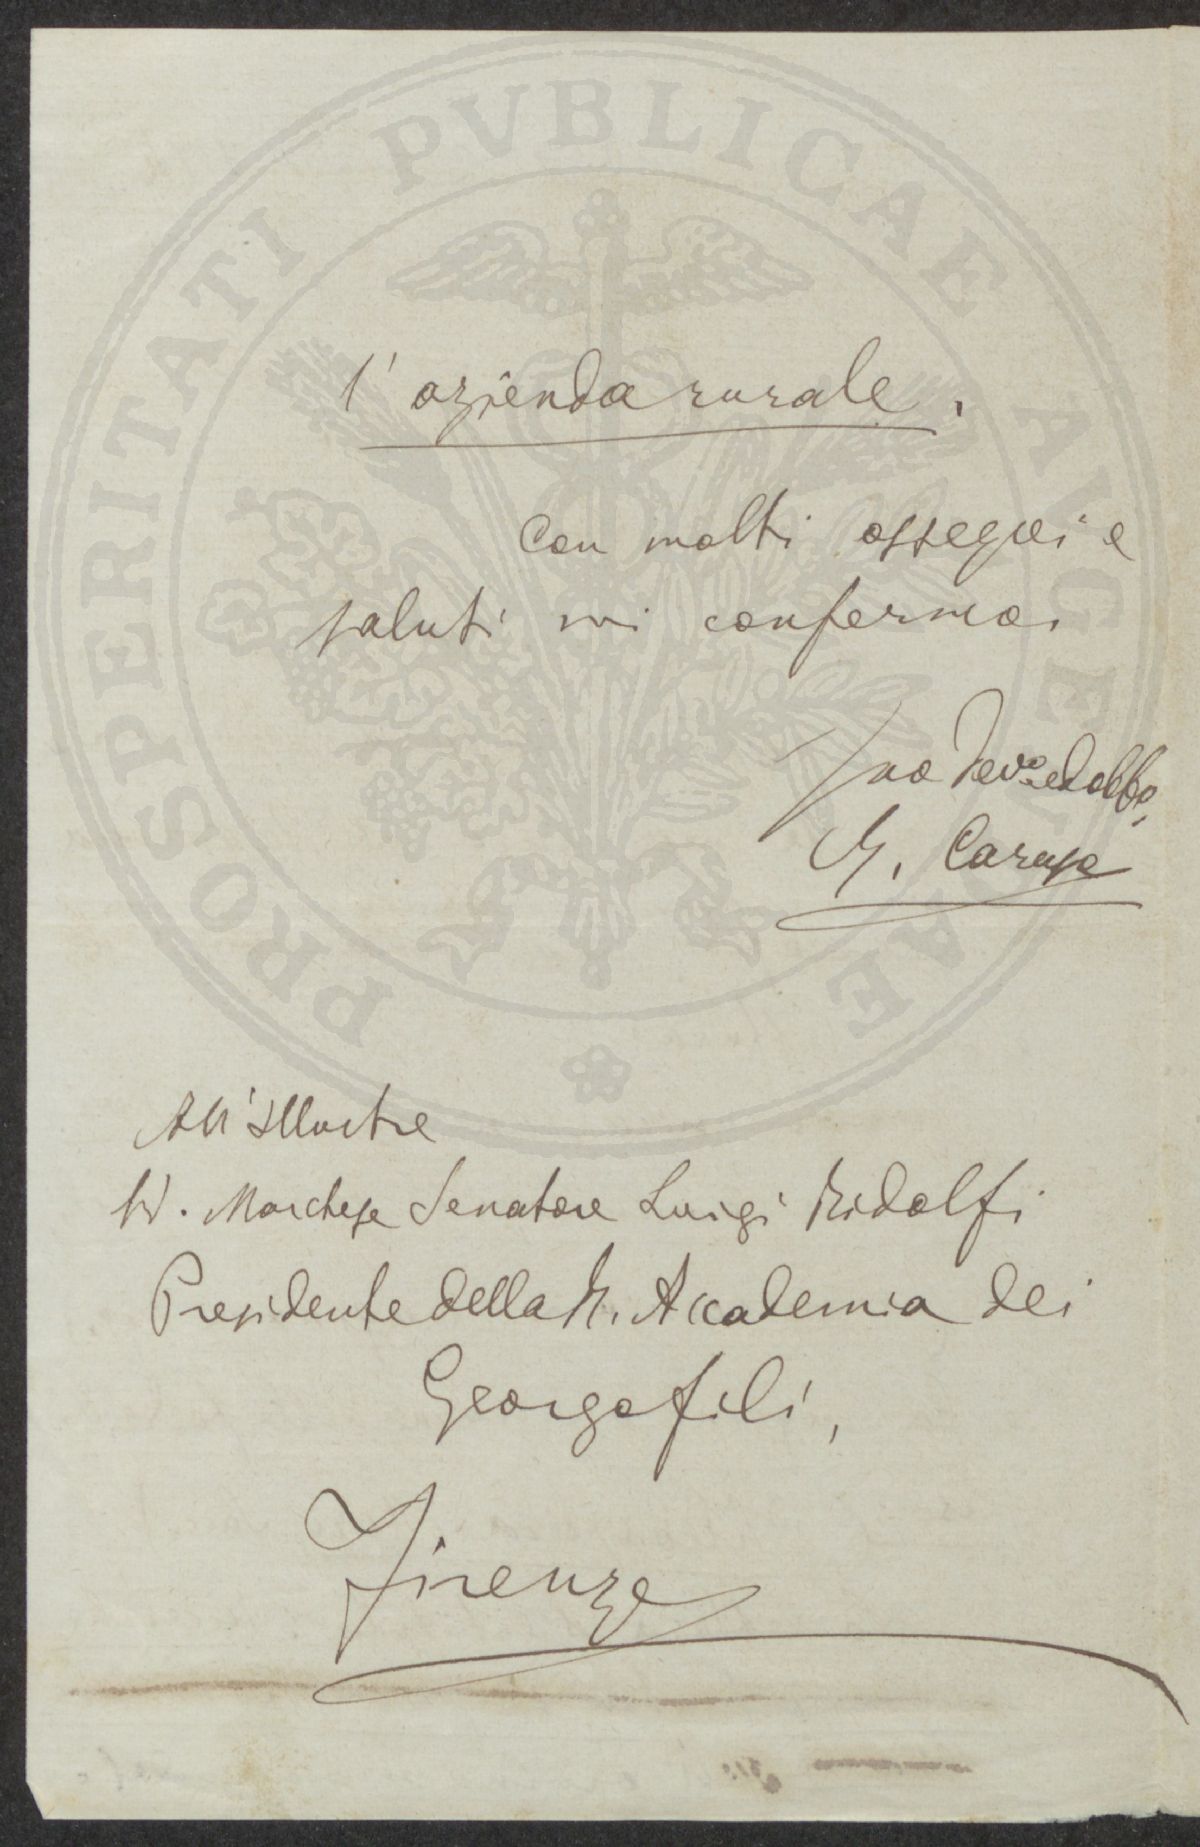 PROSPERITATI PVBLICAE AVGENDAE
l'azienda rurale.
Con molti ossequi e
saluti mi confermo.
Suo Dev.o ed obb.o
G. Caruso
All'Illustre
Sr. Marchese Senatore Luigi Ridolfi
Presidente della R. Accademia dei
Georgofili,
Firenze